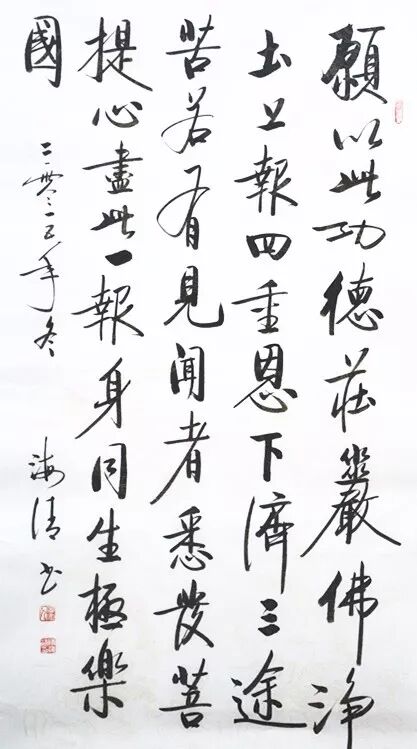 願以此功德莊嚴佛净
土上報四重恩下濟三途
苦若有見聞者悉發菩
提心盡此一報身同生極樂
國
二零一五年冬
海清书